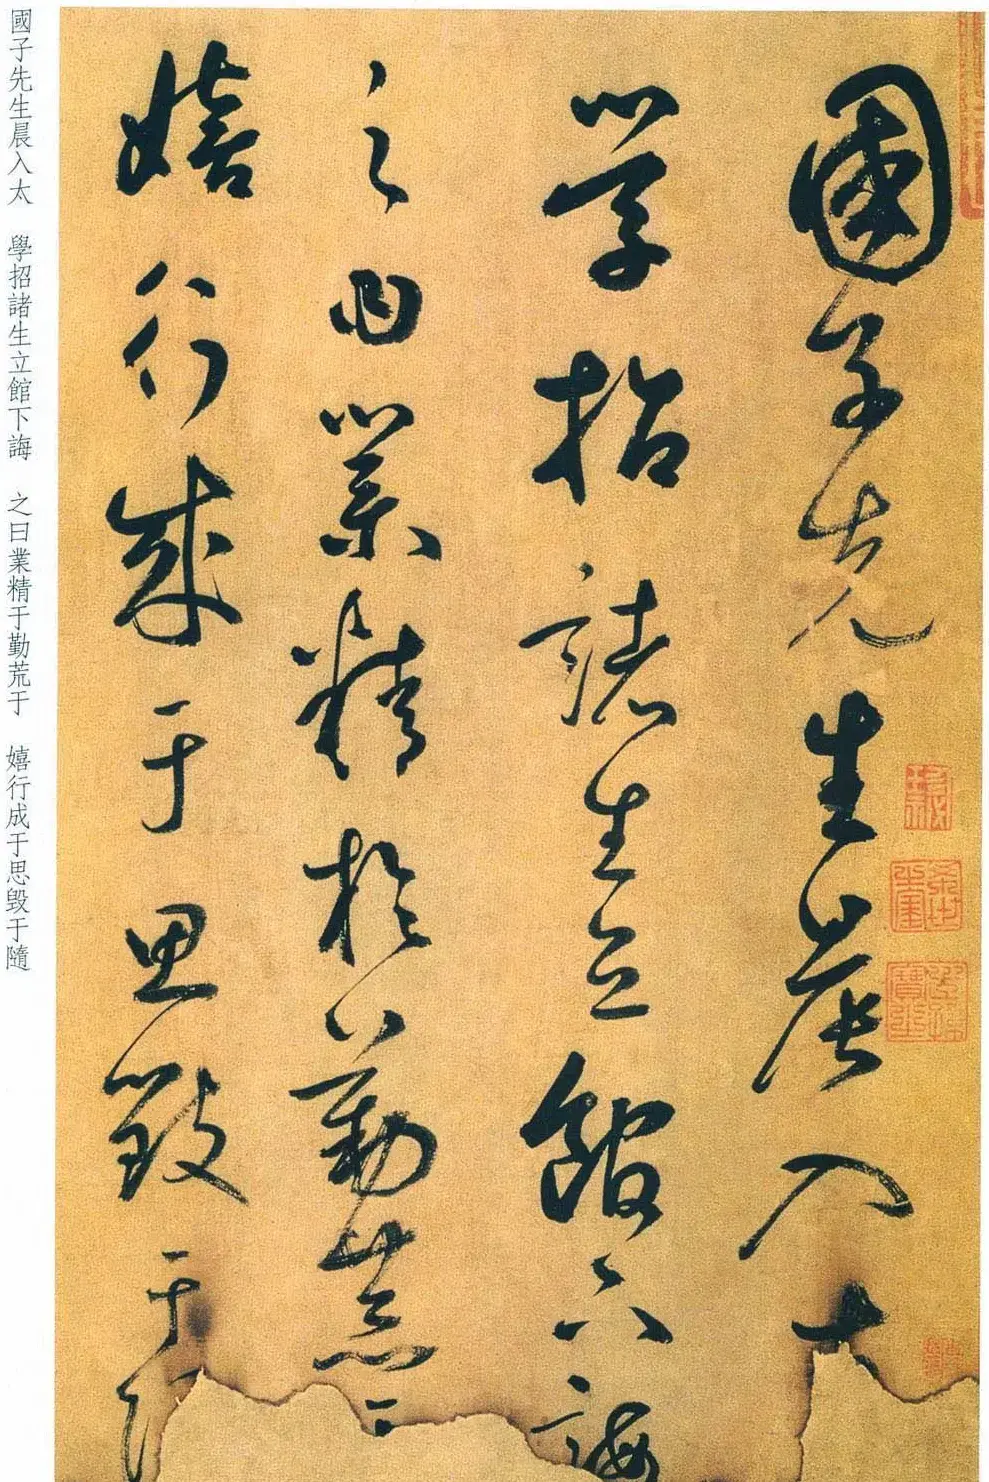 國子先生晨入太
學招諸生立館下誨
之曰業精於勤荒于
嬉行成于思毀于
國子先生晨入太 學招諸生立館下誨 之曰業精于勤荒于 嬉行成于思毀于隨